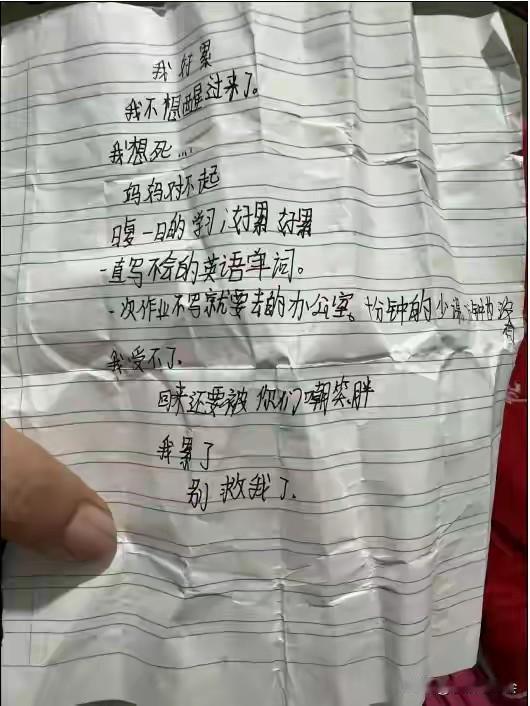 我好累
我不想醒过来了。
我想死...
妈妈对不起
日复一日的学习,好累 好累
一直写不会的英语单词。
一次作业不写就要去的办公室。十分钟的少误
我受不了.
回来还要被你们嘲笑胖
我累了
别救我了.